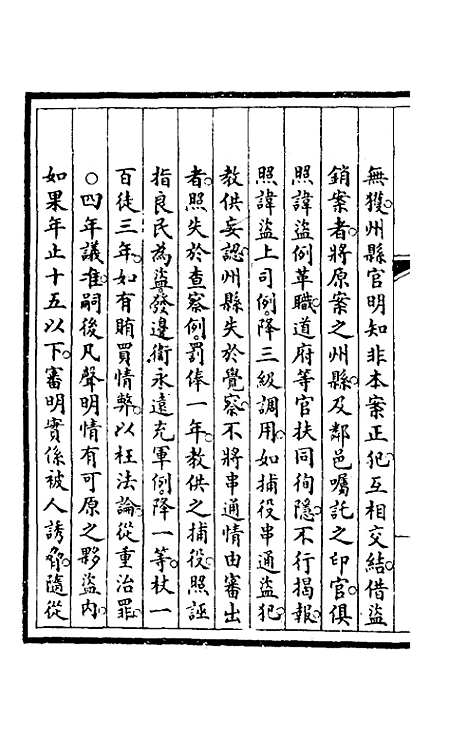 無獲州縣官明知非本案正犯互相交結借盜
銷案者將原案之州縣及鄰邑囑託之印官俱
照諱盜例革職道府等官扶同徇隱不行揭報
照諱盜上司例降三級調用如捕役串通盜犯
教供妄認州縣失於覺察不將串通情由審出
者照失於查察例罰俸一年教供之捕役照誣
指良民為盜發邊衛永遠充軍例降一等杖一
百徒三年如有賄買情弊以枉法論從重治罪
○四年議准嗣後凡聲明情有可原之夥盜內
如果年止十五以下審明實係被人誘脅隨從